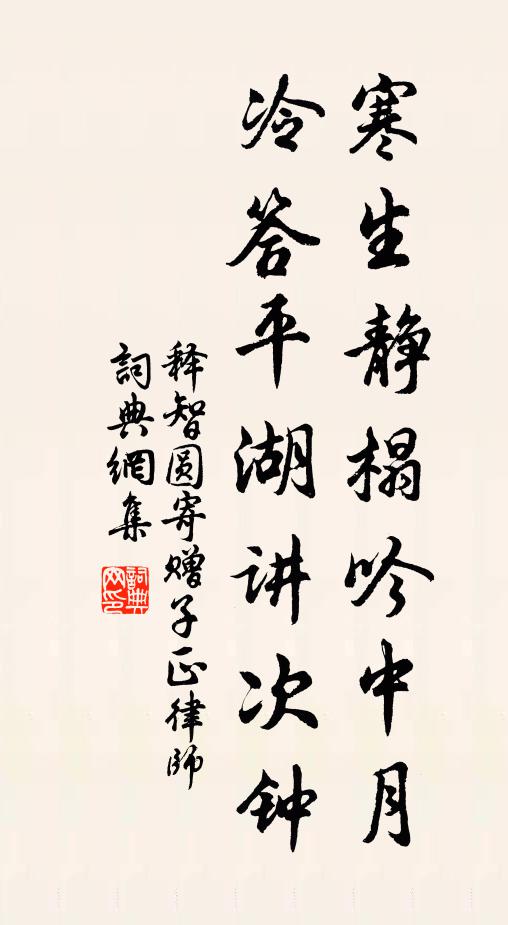 寒生静榻吟中月
冷答平湖讲次钟
释智圆寄赠子正律师
詞典網集
詞典
网印